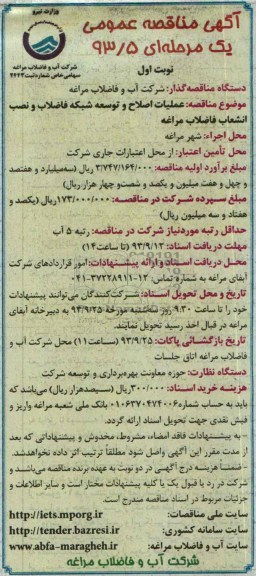 وزارت نیرو
شرکت آب و فاضلاب مراغه
سهامی خاص شماره ثبت ۲۶۶۳
آگهی مناقصه عمومی
یک مرحله‌ای ۹۳/۵
نوبت اول
دستگاه مناقصه‌گذار: شرکت آب و فاضلاب مراغه
موضوع مناقصه: عملیات اصلاح و توسعه شبکه فاضلاب و نصب
انشعاب فاضلاب مراغه
محل اجراء: شهر مراغه
محل تأمین اعتبار: از محل اعتبارات جاری شرکت
مبلغ برآورد اولیه مناقصه: ۳/۷۴۷/۱۶۴/۰۰۰ ریال (سه‌میلیارد و هفتصد
و چهل و هفت میلیون و یکصد و شصت‌و چهار هزار ریال)
مبلغ سپرده شرکت در مناقصه: ۱۷۳/۰۰۰/۰۰۰ریال (یکصد و
هفتاد و سه میلیون ریال)
حداقل رتبه موردنیاز شرکت در مناقصه: رتبه ۵ آب
مهلت دریافت اسناد: ۹۳/۹/۱۲ (تا ساعت۱۴)
محل دریافت اسناد و ارائه پیشنهادات: امور قراردادهای شرکت
آبفای مراغه به شماره تماس: ۱۲-۳۷۲۲۸۹۱۱-۰۴۱
تاریخ و محل تحویل اسناد: شرکت‌کنندگان می‌توانند پیشنهادات
خود را تا ساعت ۹:۳۰ روز سه‌شنبه مورخه ۹۳/۹/۲۵ به دبیرخانه آبفای
مراغه در قبال اخذ رسید تحویل نمایند.
تاریخ بازگشائی پاکات: ۹۳/۹/۲۵ (ساعت۱۱) محل شرکت آب و
فاضلاب مراغه اتاق جلسات
دستگاه نظارت: حوزه معاونت بهره‌برداری و توسعه شرکت
هزینه خرید اسناد: ۳۰۰/۰۰۰ریال (سیصدهزار ریال) می‌باشد که
باید به حساب شماره ۰۱۰۶۳۷۰۴۷۴۰۰۶ بانک ملی شعبه مراغه واریز و
فیش نقدی جهت تحویل اسناد ارائه گردد.
- به پیشنهادات فاقد امضاء، مشروط، مخدوش و پیشنهاداتی که بعد
از مدت مقرر این آگهی واصل شود مطلقا ترتیب اثر داده نخواهدشد.
- ضمناً هزینه درج آگهی در دو نوبت به عهده برنده مناقصه می‌باشد و
شرکت در رد یا قبول یک یا کلیه پیشنهادات مختار است و سایر اطلاعات و
جزئیات مربوط در اسناد مناقصه مندرج است.
سایت ملی مناقصات: http://iets.mporg.ir
سایت سامانه کشوری: http://tender.bazresi.ir
سایت آب و فاضلاب مراغه: www.abfa-maragheh.ir
شرکت آب و فاضلاب مراغه